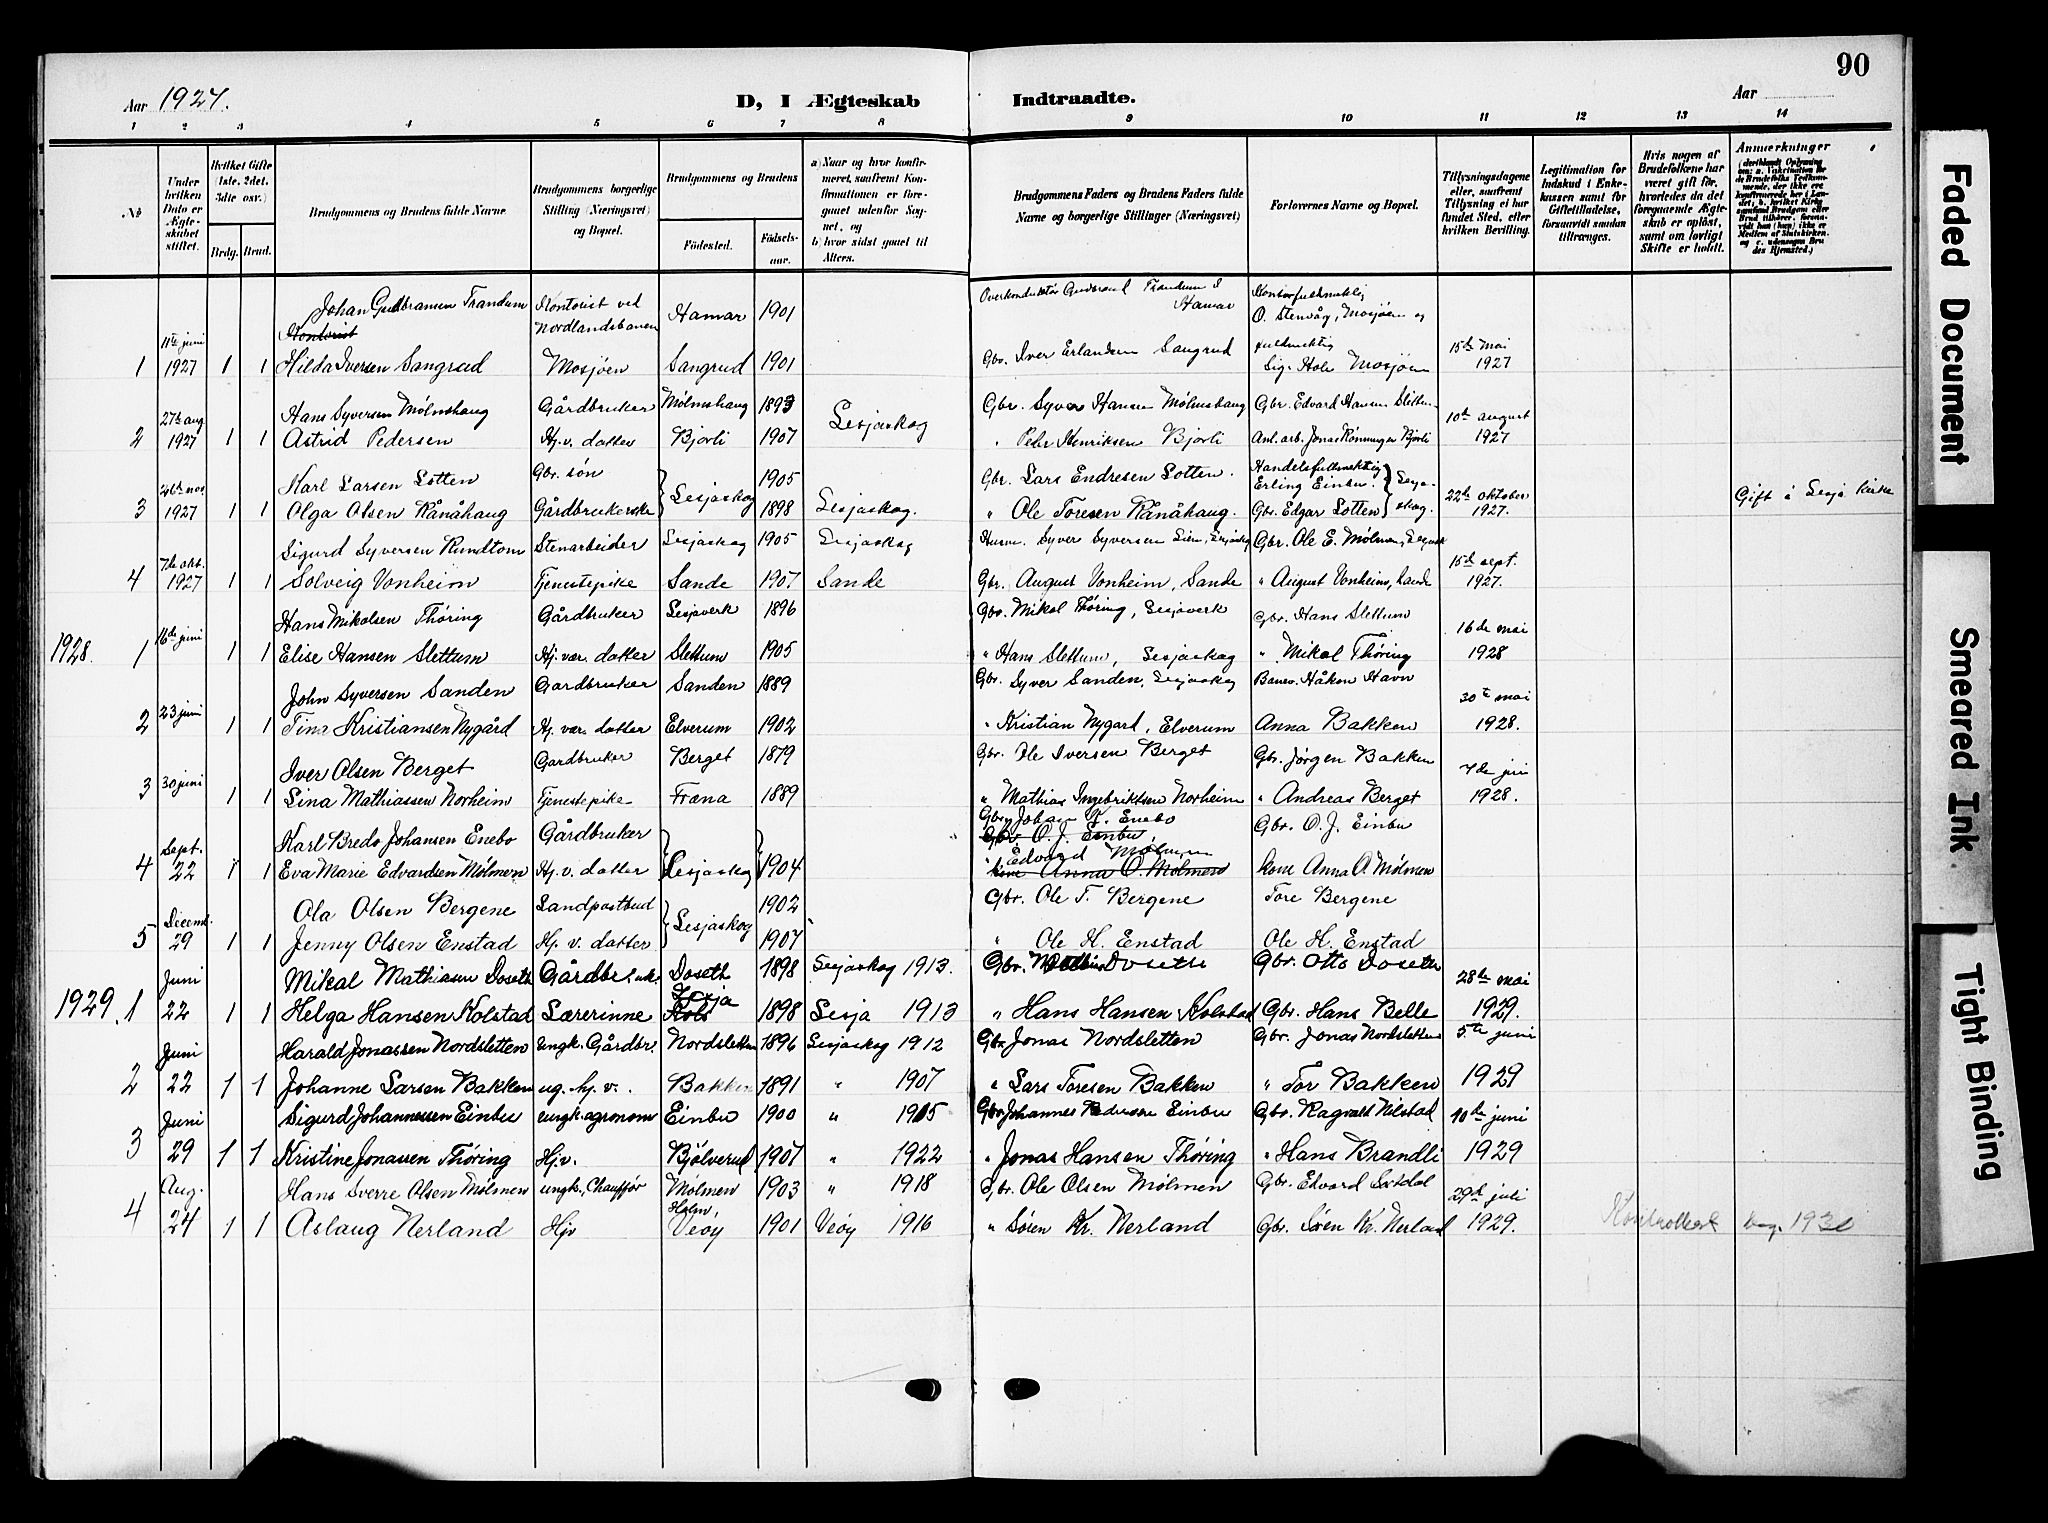 90
Aar 1927.
D, I Ægteskab Indtraadte.
Aar
1 2 3 4 5 6 7 8 9 10 11 12 13 14
No
Under hvilken Dato er Ægteskabet stiftet.
Hvilket Gifte (1ste, 2det, 3dte osv.)
Brdg. Brud.
Brudgommens og Brudens fulde Navne
Brudgommens borgerlige Stilling (Næringsvei) og Bopæl.
Brudgommens og Brudens
Fødested. Fødselsaar.
a) Naar og hvor konfirmeret, saafremt Konfirmationen er foregaaet udenfor Sognet, og
b) hvor sidst gaaet til Alters.
Brudgommens Faders og Brudens Faders fulde Navne og borgerlige Stillinger (Næringsvei)
Forlovernes Navne og Bopæl.
Tillysningsdagene eller, saafremt Tillysning ei har fundet Sted, efter hvilken Bevilling.
Legitimation for Indskud i Enkekassen samt for Giftetilladelse, forsaavidt saadan tiltrænges.
Hvis nogen af Brudefolkene har været gift før, hvorledes da det foregaaende Ægteskab er opløst, samt om lovligt Skifte er holdt.
Anmærkninger
Johan Gudbransen Trandum Kontorist ved Nordlandsbanen Hamar 1901 Overkonduktør Gudbrand Trandum Hamar Kontorfuldmektig O. Stenvåg, Mosjøen og
Kontorist
1 11te juni 1927 1 1 Hilda Iversen Sangrud Mosjøen Sangrud 1901 Gbr. Iver Erlandsen Sangrud fuldmektig Sig. Hole Mosjøen 15de mai 1927
Hans Syversen Mølmshaug Gårdbruker Mølmshaug 1893 Lesjaskog Gbr. Syver Hansen Mølmshaug Gbr. Edvard Hansen Slettum
2 27de aug 1927 1 1 Astrid Pedersen Hj. v. datter Bjorli 1907 " Peder Henriksen Bjorli Anl. arb. Jonas Rønningen Bjorli 10de august 1927
Karl Larsen Lotten Gbr. søn Lesjaskog 1905 Gbr. Lars Endresen Lotten. Handelsfullmektig Erling Einbu. Lesjaskog.
3 26de nov. 1927 1 1 Olga Olsen Rånåhaug Gårdbrukerske 1898 Lesjaskog. " Ole Toresen Rånåhaug. Gbr. Edgar Lotten 22de oktober 1927. Gift i Lesja kirke
Sigurd Syversen Rundtom Stenarbeider Lesjaskog 1905 Lesjaskog Husm. Syver Syversen Lien, Lesjaskog Gbr. Ole E. Mølmen, Lesjask
4 7de okt. 1927 1 1 Solveig Vonheim Tjenestepike Sande 1907 Sande Gbr. August Vonheim, Sande " August Vonheim, Sande 15de sept. 1927.
Hans Mikalsen Thøring Gårdbruker Lesjaverk 1896 Gbr. Mikal Thøring, Lesjaverk Gbr. Hans Slettum
1928. 1 16de juni 1 1 Elise Hansen Slettum Hj. vær. datter Slettum 1905 " Hans Slettum, Lesjaskog " Mikal Thøring 16de mai 1928
John Syversen Sanden Gardbruker Sanden 1889 Gbr. Syver Sanden, Lesjaskog Banev. Håkon Havn
2 23 juni 1 1 Tina Kristiansen Nygård Hj. vær. datter Elverum 1902 " Kristian Nygard, Elverum Anna Bakken 30te mai 1928.
Iver Olsen Berget Gardbruker Berget 1879 Gbr. Ole Iversen Berget Gbr. Jørgen Bakken
3 30 juni 1 1 Lina Mathiassen Norheim Tjenestepike Fræna 1889 " Mathias Ingebriktsen Norheim " Andreas Berget 7de juni 1928.
Karl Bredo Johansen Enebo Gårdbruker Gbr. Johan T. Enebo Gbr. O. J. Einbu
Gbr. O. J. Einbu
4 Sept. 22 1 1 Eva Marie Edvardsen Mølmen Hj. v. datter Lesjaskog 1904 " Edvard Mølmen kone Anna O Mølmen
kone Anna O. Mølmen
Ola Olsen Bergene Landpostbud Lesjaskog 1902 Gbr. Ole T. Bergene Tore Bergene
5 Decemb. 29 1 1 Jenny Olsen Enstad Hj. v. datter 1907 " Ole H. Enstad Ole H. Enstad
Mikal Mathiasen Doseth Gårdbr. Doseth 1898 Lesjaskog 1913. Gbr. Mathias Doseth Gbr. Otto Doseth
1929. 1 Juni 22 1 1 Helga Hansen Kolstad Lærerinne Lesja Kols 1898 Lesja 1913 " Hans Hansen Kolstad Gbr. Hans Belle 28de mai 1929.
Harald Jonassen Nordsletten ungk. Gårdbr. Nordsletten 1896 Lesjaskog 1912 Gbr. Jonas Nordsletten Gbr. Jonas Nordsletten
2 Juni 22 1 1 Johanne Larsen Bakken ug. hj. v. Bakken 1891 " 1907 " Lars Toresen Bakken " Tor Bakken 5te juni 1929
Sigurd Johannessen Einbu ungk. agronom Einbu 1900 " 1915 Gbr. Johannes Pedersen Einbu Gbr. Ragvald Nilstad
3 Juni 29 1 1 Kristine Jonassen Thøring Hjv. Bjølverud 1907 " 1922 " Jonas Hansen Thøring " Hans Brandli 10de juni 1929
Hans Sverre Olsen Mølmen ungk., Chauffør Mølmen 1903 " 1918 Gbr. Ole Olsen Mølmen Gbr. Edvard
4 Aug. 24 1 1 Aslaug Nerland Hjv Holm, Veøy 1901 Veøy 1916 " Søren Kr. Nerland Gbr. Søren Kr. Nerland 29de juli 1929.
Kontrollert 1930
Faded Document
Smeared Ink
Tight Binding